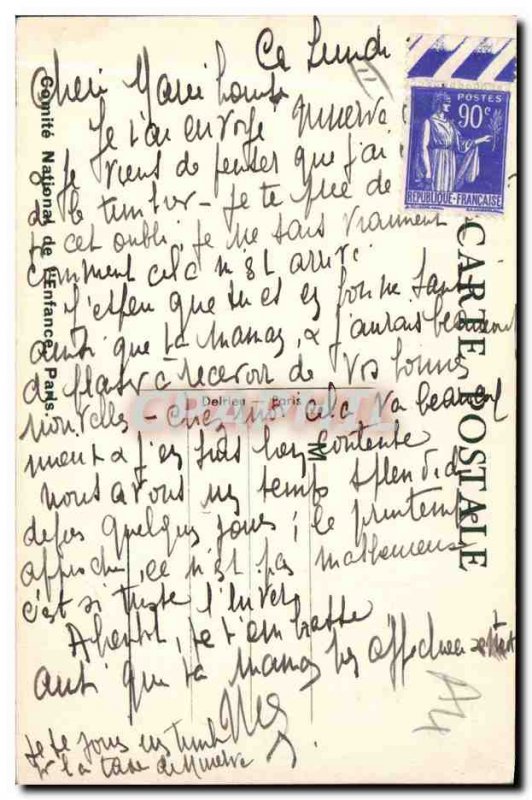 Ce Lundi
Cheri Marie Louise
Je t'ai envoyé Minerva
Je viens de penser que j'ai
de le timbrer - Je te prie de
cet oubli, je ne sais vraiment
comment cela m'est arrivé
J'espère que tu es en bonne santé
ainsi que ta maman, & j'aurais beaucoup
de plaisir à recevoir de vos bonnes
nouvelles - chez moi cela va
& j'en suis bien contente
Nous avons un temps splendide
depuis quelques jours ; le printemps
approche, ce n'est pas malheureux
c'est si triste l'hiver
A bientôt, je t'embrasse
ainsi que ta maman bien affectueusement
Je te joins un timbre
pr la taxe de Minerva
POSTES
90c
RÉPUBLIQUE-FRANÇAISE
CARTE POSTALE
Comité National de l'Enfance, Paris.
Delrieu — Paris
M